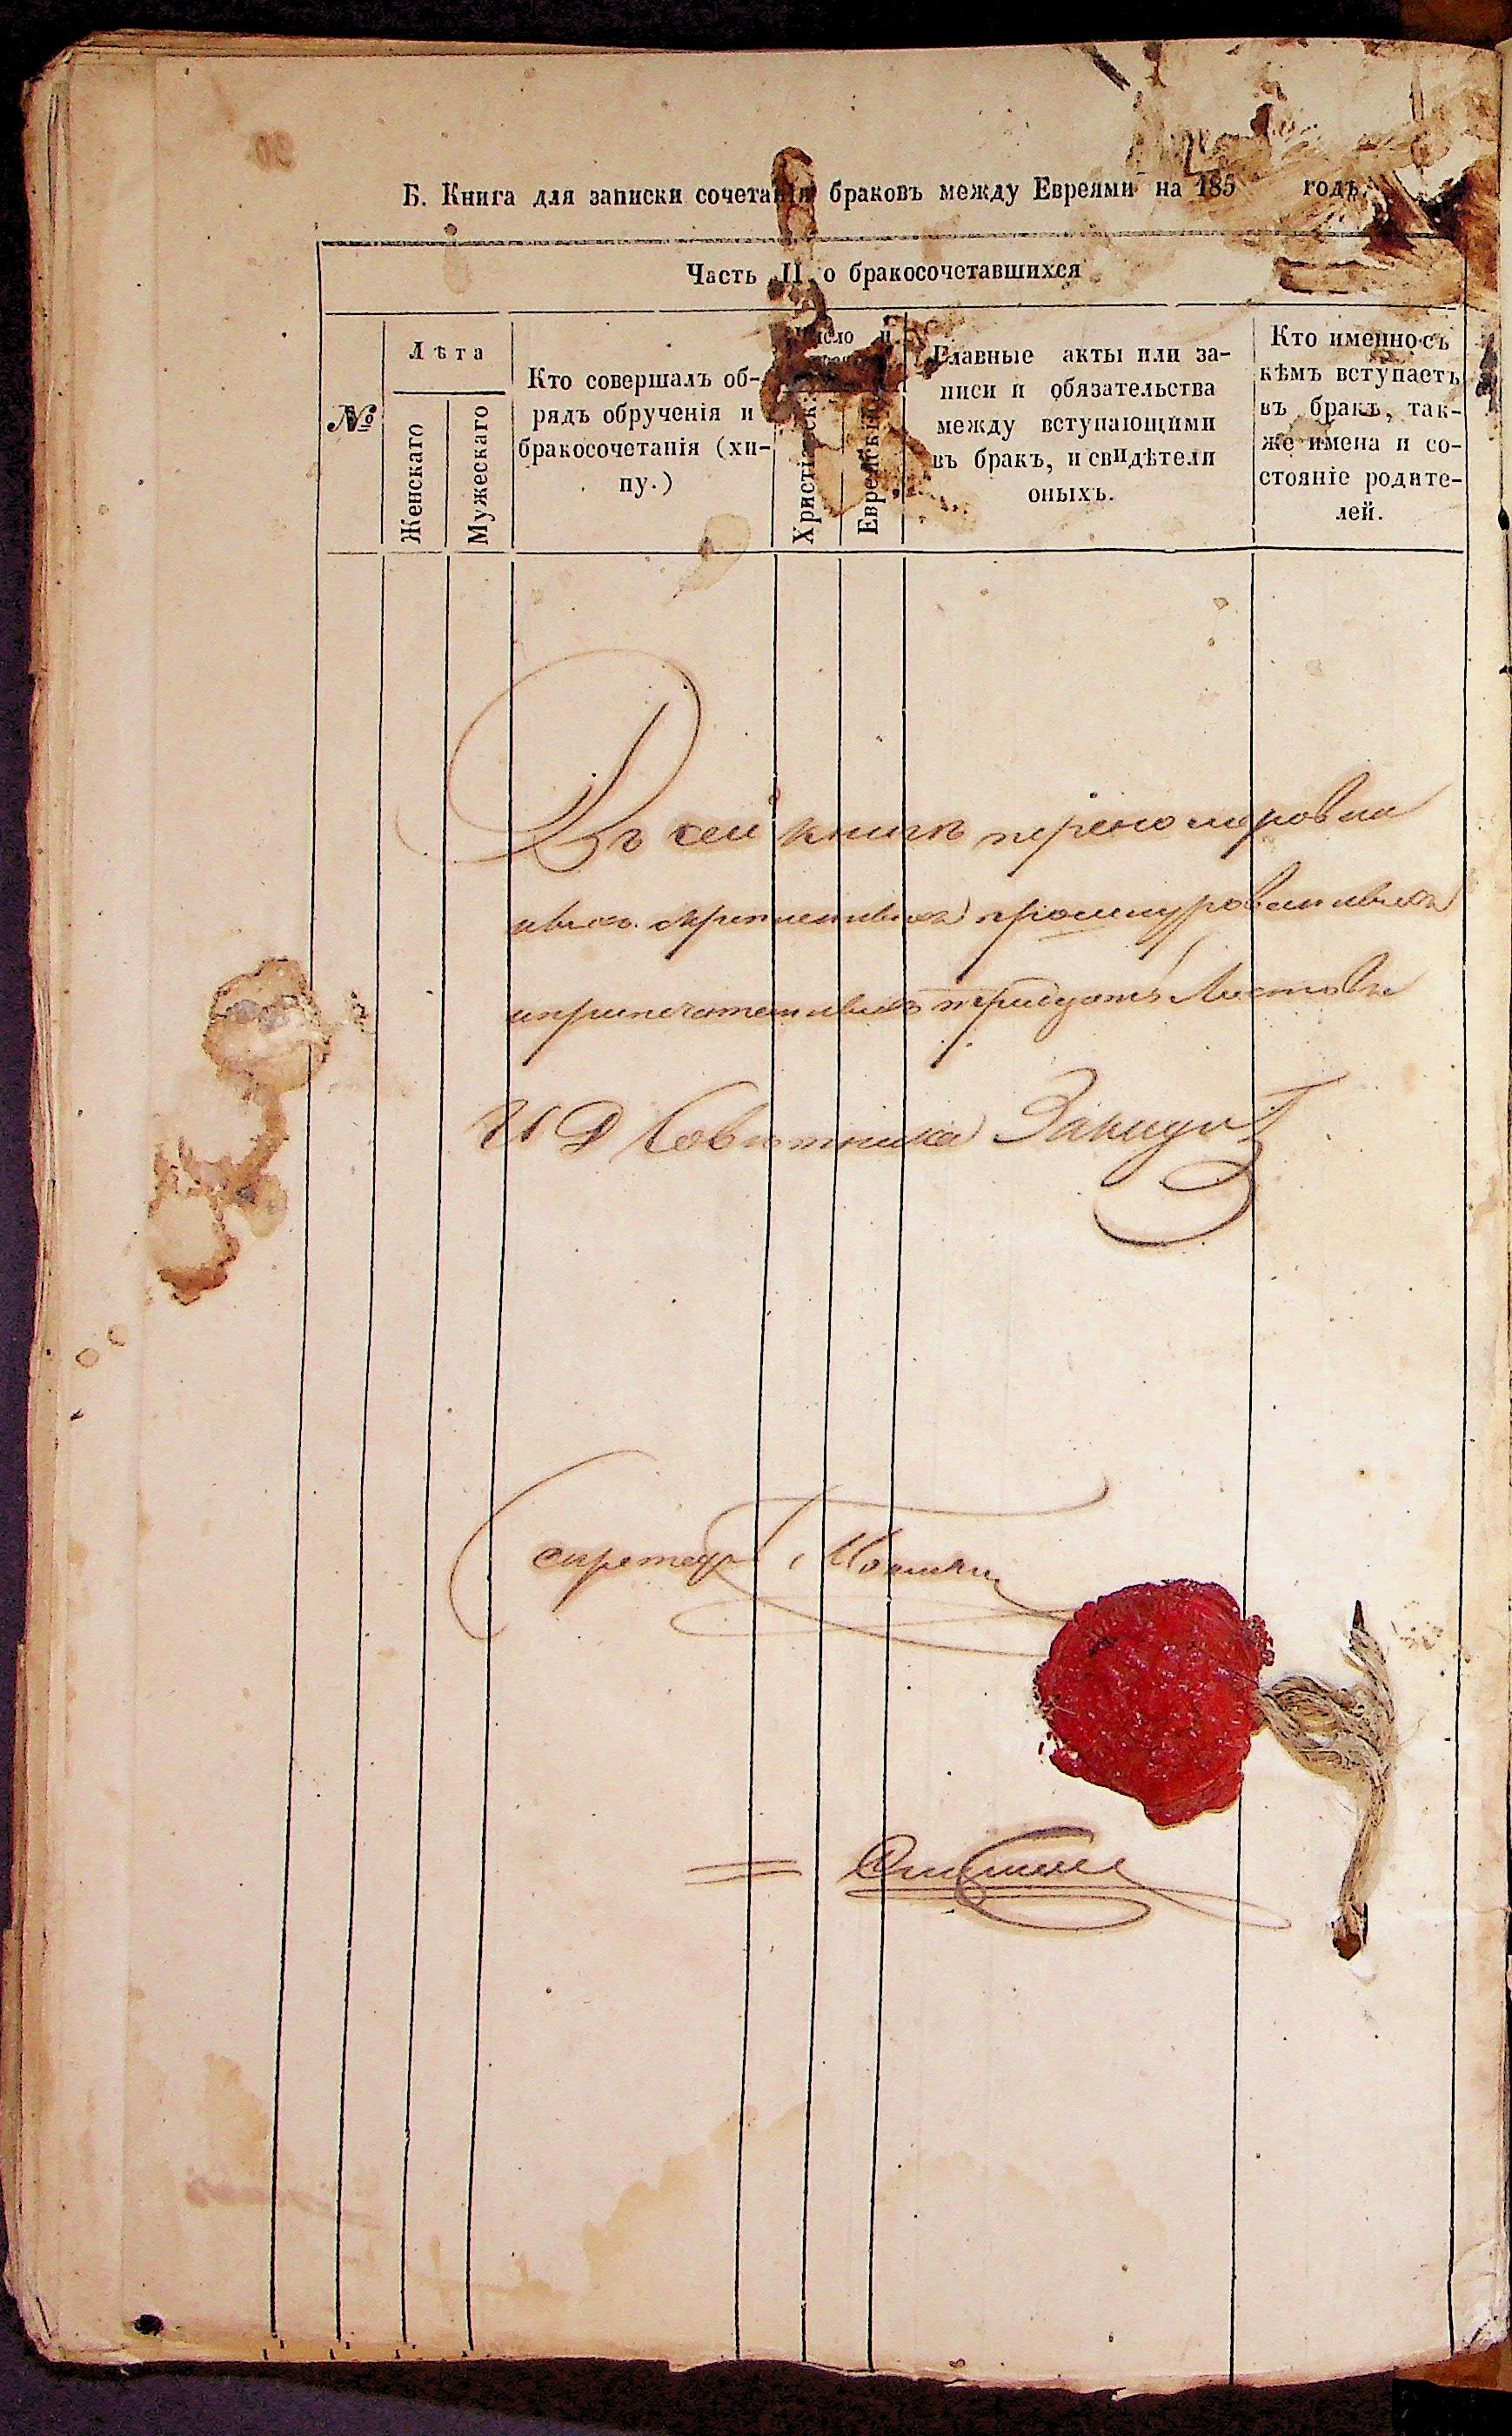 Б. Книга для записки сочетанія браковъ между Евреями на 185 годъ.
Часть II, о бракосочетавшихся
№
Лѣта
Женскаго
Мужескаго
Кто совершалъ об-
рядъ обрученія и
бракосочетанія (хи-
пу.)
Число и
Христіанск:
Еврейскій
Главные акты или за-
писи и обязательства
между вступающими
въ бракъ, и свидѣтели
оныхъ.
Кто именно съ
кѣмъ вступаетъ
въ бракъ, так-
же имена и со-
стояніе родите-
лей.
Въ сей книгѣ переномерован
ныхъ скрепленныхъ прошнурованныхъ
и припечатанныхъ тридцать листовъ
И Д Совѣтника
Секретарь